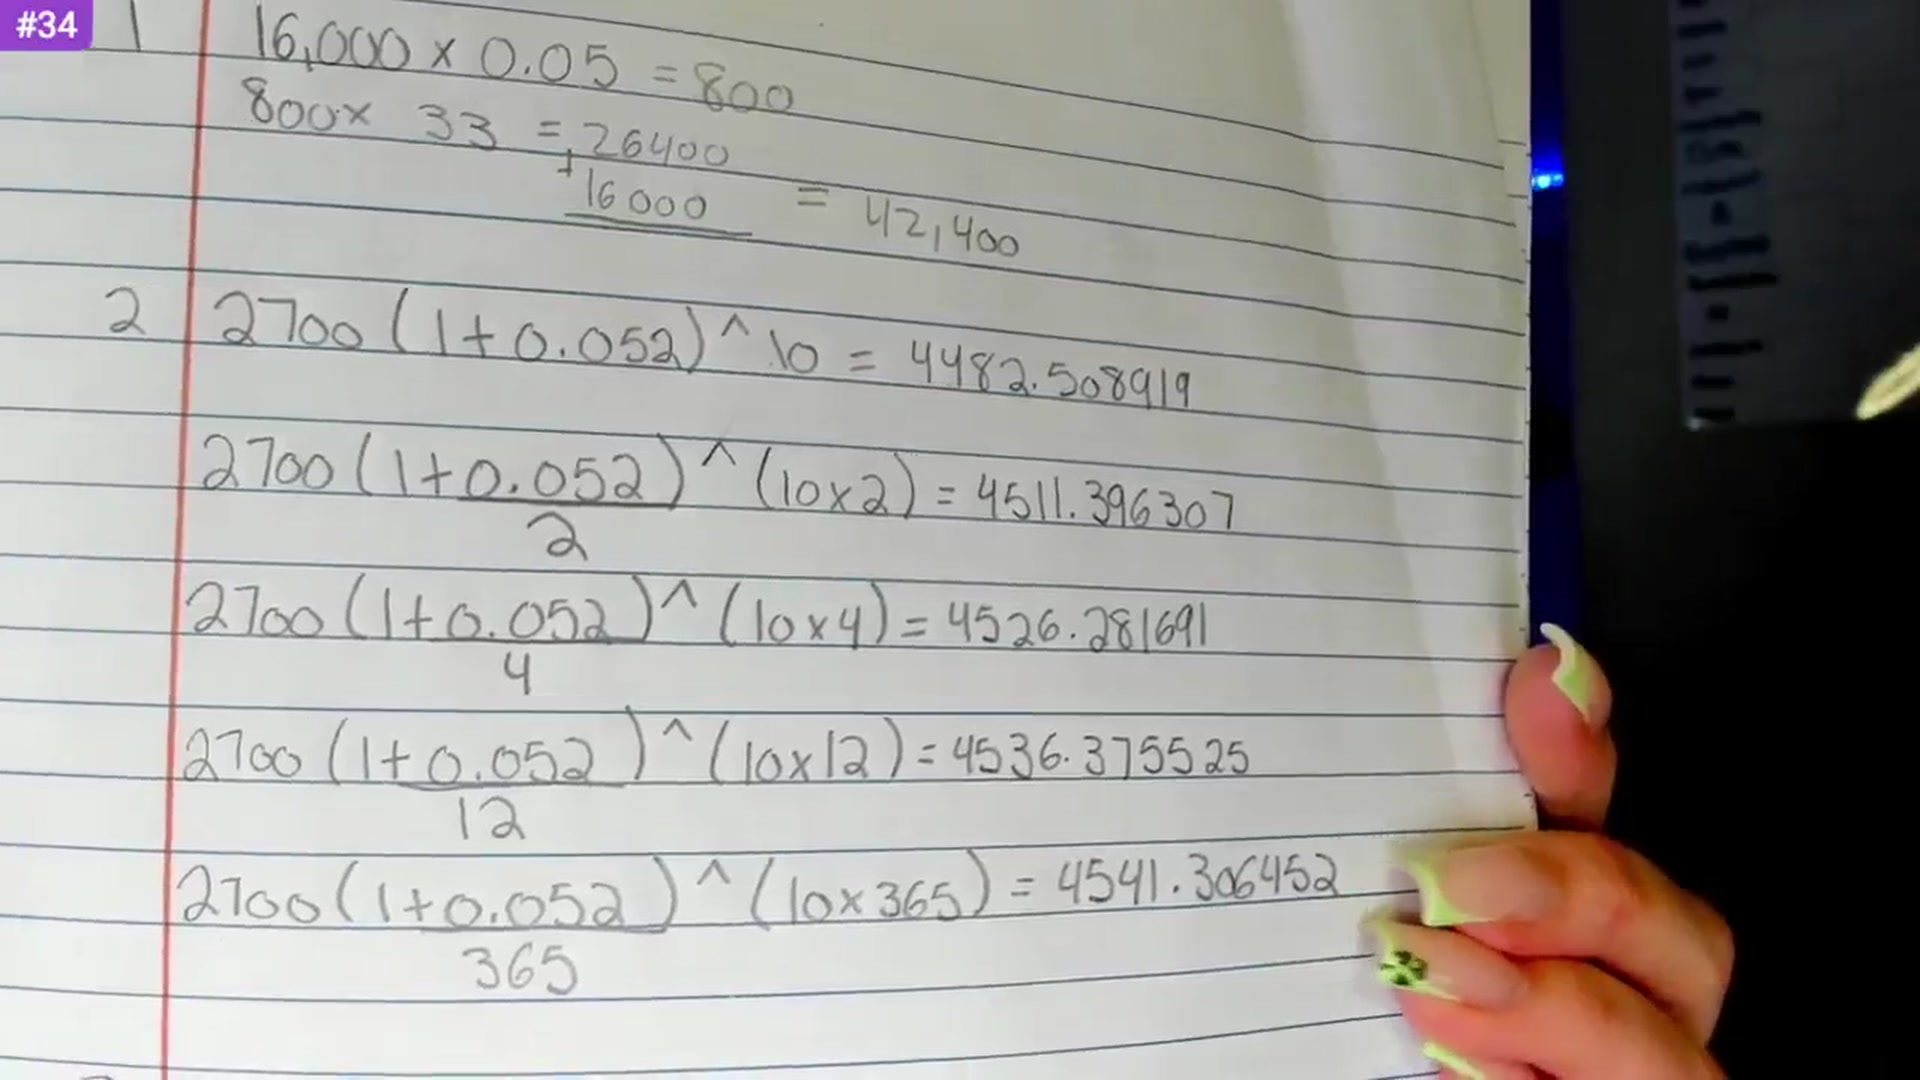 #34
1 16,000 x 0.05 = 800
800x 33 = 26400
+16000 = 42,400
2 2700 (1+0.052)^10 = 4482.508919
2700 (1+0.052)^(10x2) = 4511.396307
2
2700 (1+0.052)^(10x4) = 4526.281691
4
2700 (1+0.052)^(10x12) = 4536.375525
12
2700 (1+0.052)^(10x365) = 4541.306452
365